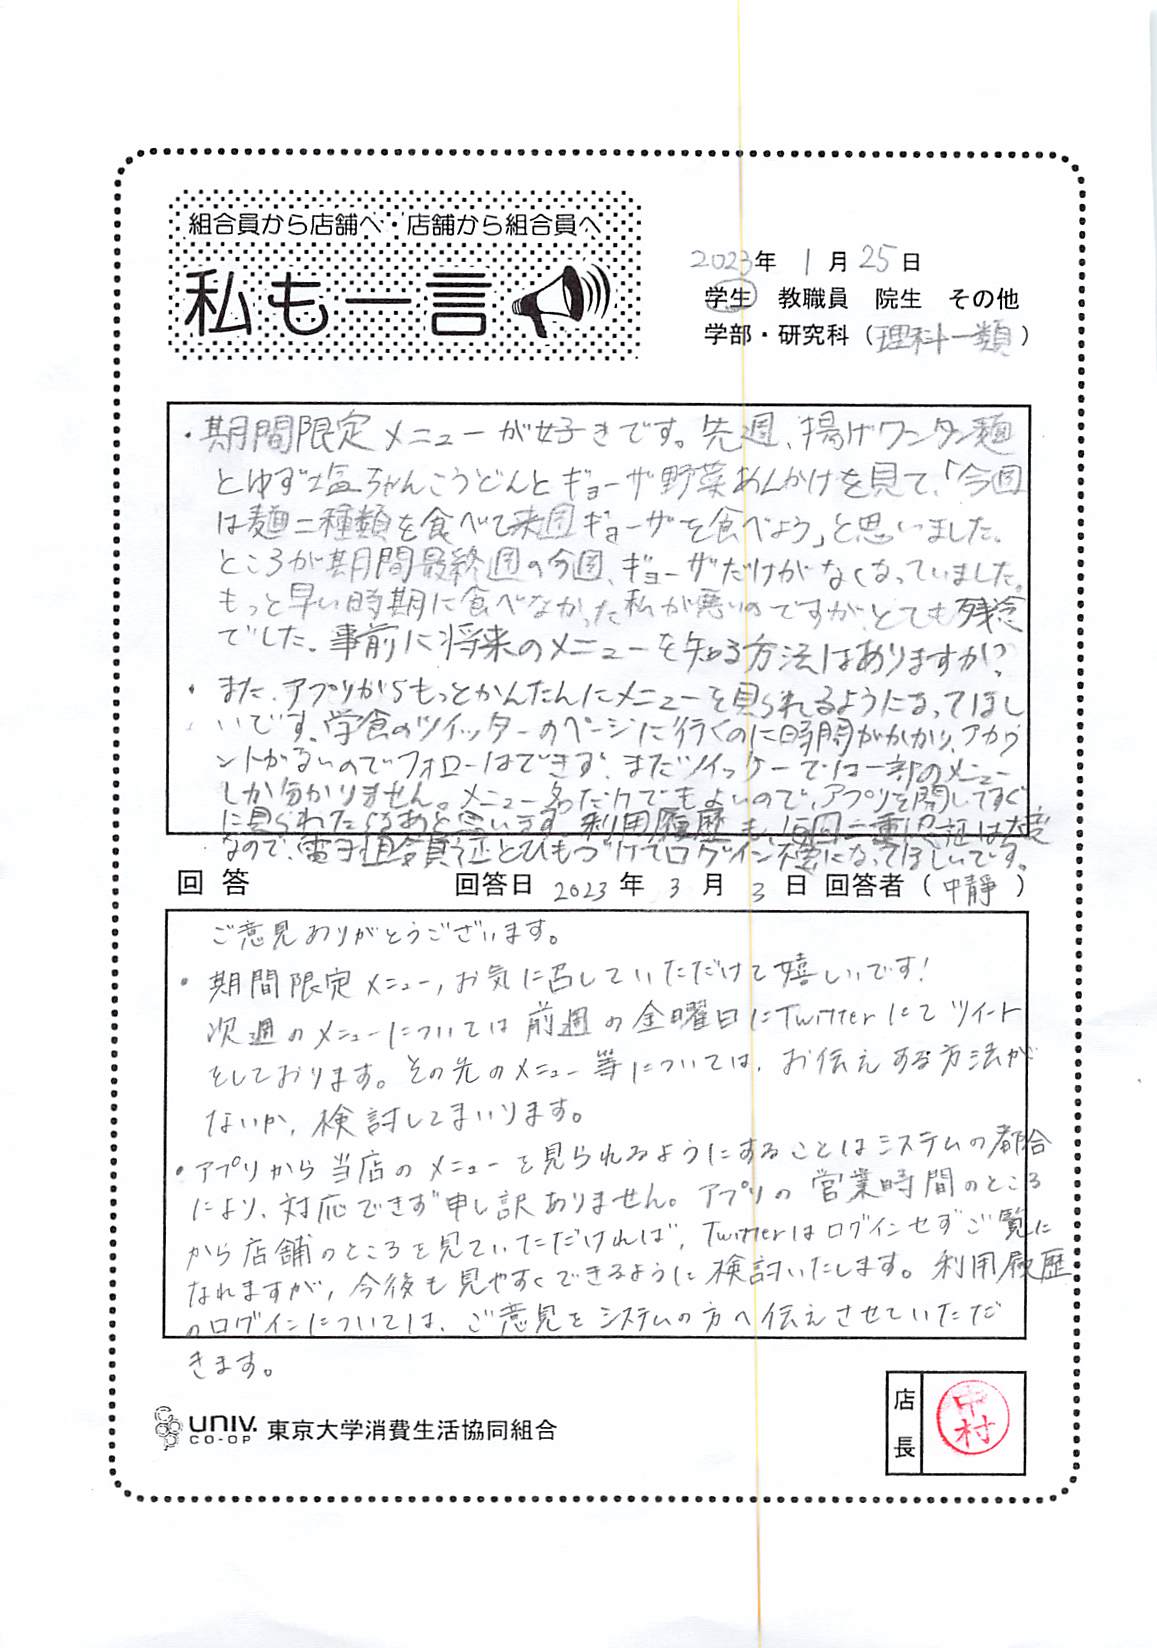 組合員から店舗へ・店舗から組合員へ
私も一言
2023年 1月25日
学生 教職員 院生 その他
学部・研究科(理科一類)
・期間限定メニューが好きです。先週、揚げワンタン麺
とゆず塩ちゃんこうどんとギョーザ野菜あんかけを見て、「今週
は麺二種類を食べて来週ギョーザを食べよう」と思いました。
ところが期間最終週の今週、ギョーザだけがなくなっていました。
もっと早い時期に食べなかった私が悪いのですが、とても残念
でした。事前に将来のメニューを知る方法はありますか?
・また、アプリからもっとかんたんにメニューを見られるようになってほし
いです。学食のツイッターのページに行くのに時間がかかり、アカウ
ントがないのでフォローはできず、まだツイッターでは一部のメニュー
しか分かりません。メニュー名だけでもよいので、アプリを開いてすぐ
に見られたらなあと思います。利用履歴も、毎回二重認証は大変
なので、電子組合員証とひもづけてログイン不要になってほしいです。
回答 回答日 2023年 3月 3日 回答者(中靜)
ご意見ありがとうございます。
・期間限定メニュー、お気に召していただけて嬉しいです!
次週のメニューについては前週の金曜日にTwitterにてツイート
をしております。その先のメニュー等については、お伝えする方法が
ないか、検討してまいります。
・アプリから当店のメニューを見られるようにすることはシステムの都合
により、対応できず申し訳ありません。アプリの営業時間のところ
から店舗のところを見ていただければ、Twitterはログインせずご覧に
なれますが、今後も見やすくできるように検討いたします。利用履歴
のログインについては、ご意見をシステムの方へ伝えさせていただ
きます。
UNIV. CO-OP 東京大学消費生活協同組合
店長 中村